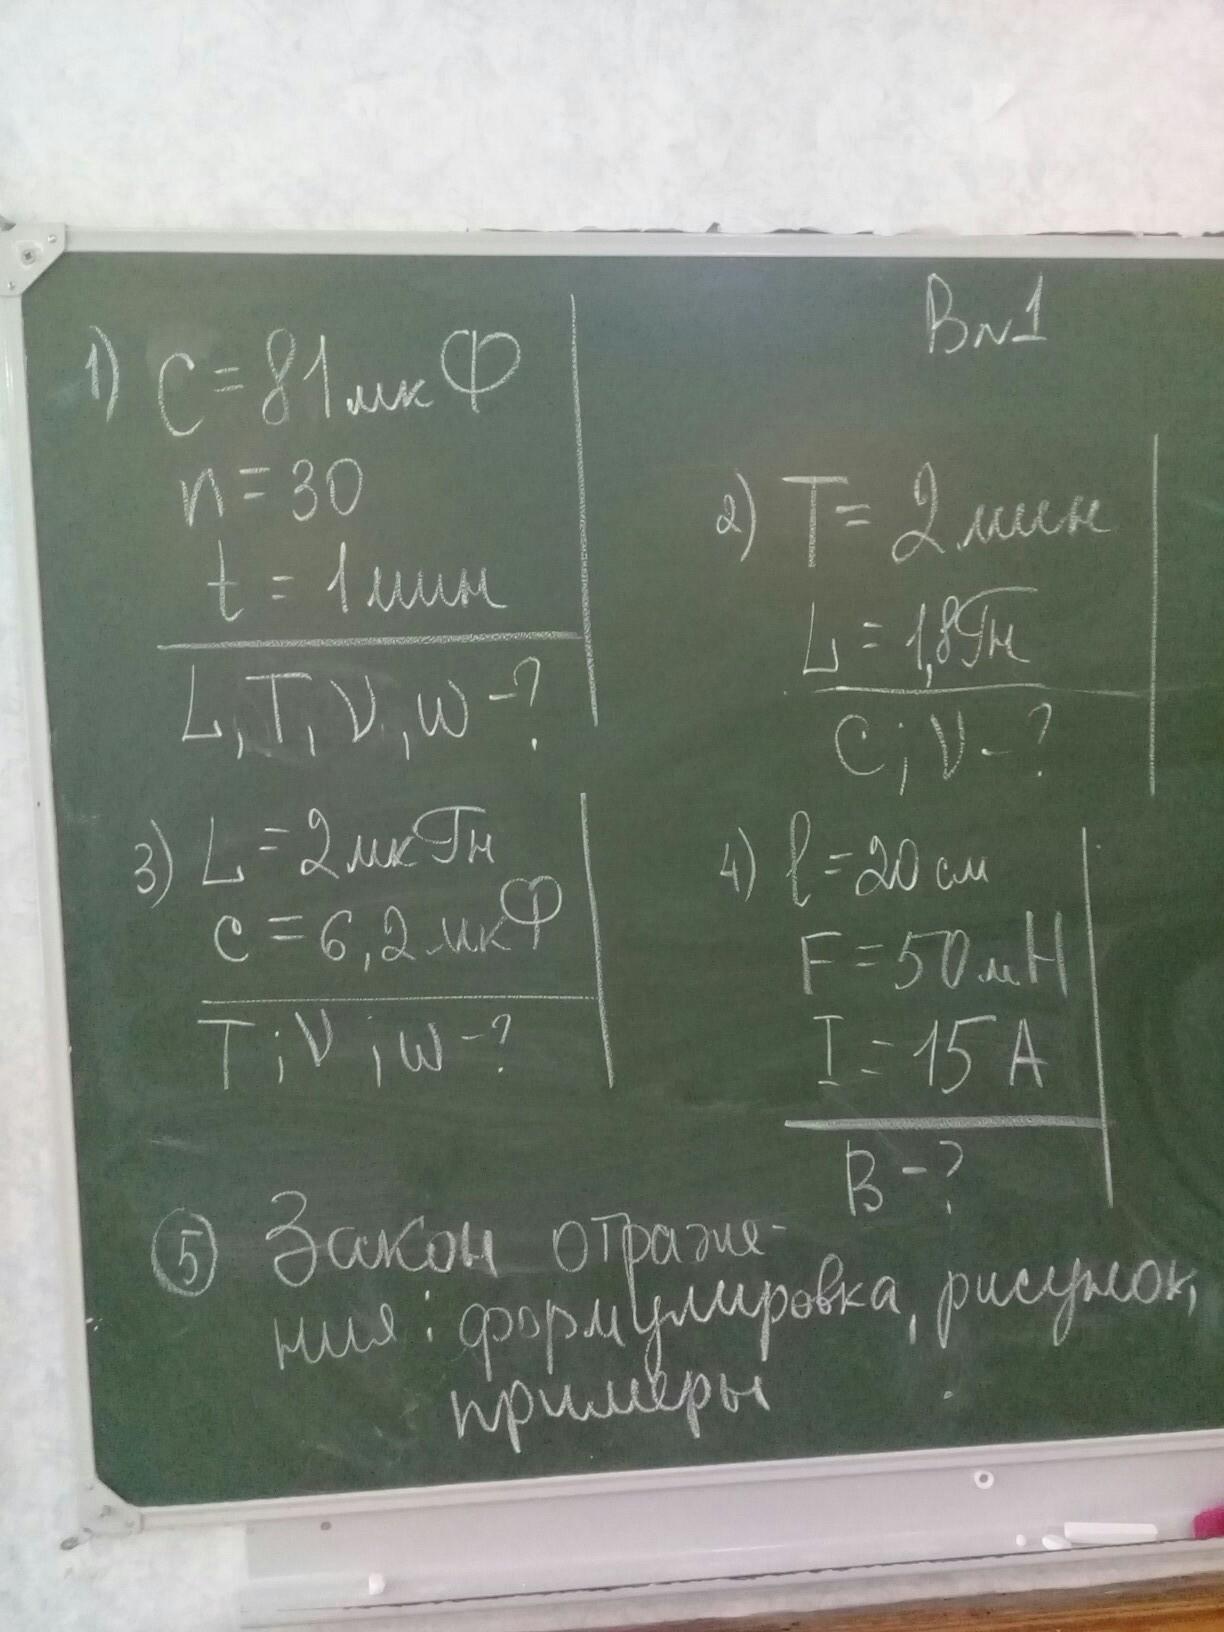 В№1
1) C = 81 мк Ф
n = 30
t = 1 мин
L, T, ν, ω - ?
2) T = 2 мин
L = 1,8 Гн
C; ν - ?
3) L = 2 мкГн
c = 6,2 мкФ
T; ν; ω - ?
4) l = 20 см
F = 50 мН
I = 15 А
B - ?
5 Закон отраже-
ния: формулировка, рисунок,
примеры